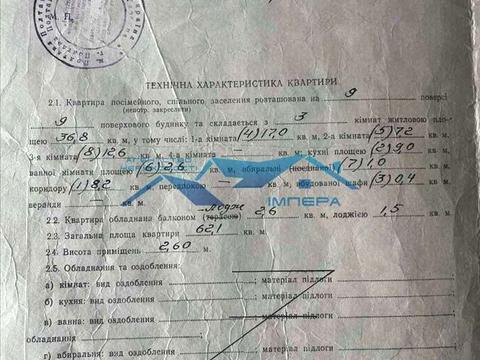 М. П.
ТЕХНІЧНА ХАРАКТЕРИСТИКА КВАРТИРИ
2.1. Квартира посімейного, спільного заселення розташована на 9 поверсі
(непотр. закреслити)
9 поверхового будинку та складається з 3 кімнат житловою пло-
щею 36,8 кв. м, у тому числі: 1-а кімната (4) 17,0 кв. м, 2-а кімната (5) 7,2
3-я кімната (8) 12,6 кв. м, 4-а кімната — кв. м; кухні площею (2) 9,0 кв. м,
ванної кімнати площею (6) 2,6 кв. м, вбиральні (поєднаної) (7) 1,0
коридору (1) 8,2 кв. м, передпокою — кв. м, вбудованої шафи (3) 0,4 кв. м,
веранди — кв. м.
ІМПЕРА
лодж
2.2. Квартира обладнана балконом (терасою) 2,6 кв. м, лоджією 1,5 кв. м.
2.3. Загальна площа квартири 62,1 кв. м.
2.4. Висота приміщень 2,60 м.
2.5. Обладнання та оздоблення:
а) кімнат: вид оздоблення ; матеріал підлоги
б) кухня: вид оздоблення ; матеріал підлоги
в) ванна: вид оздоблення ; матеріал підлоги
обладнання
г) вбиральня: вид оздоблення ; матеріал підлоги